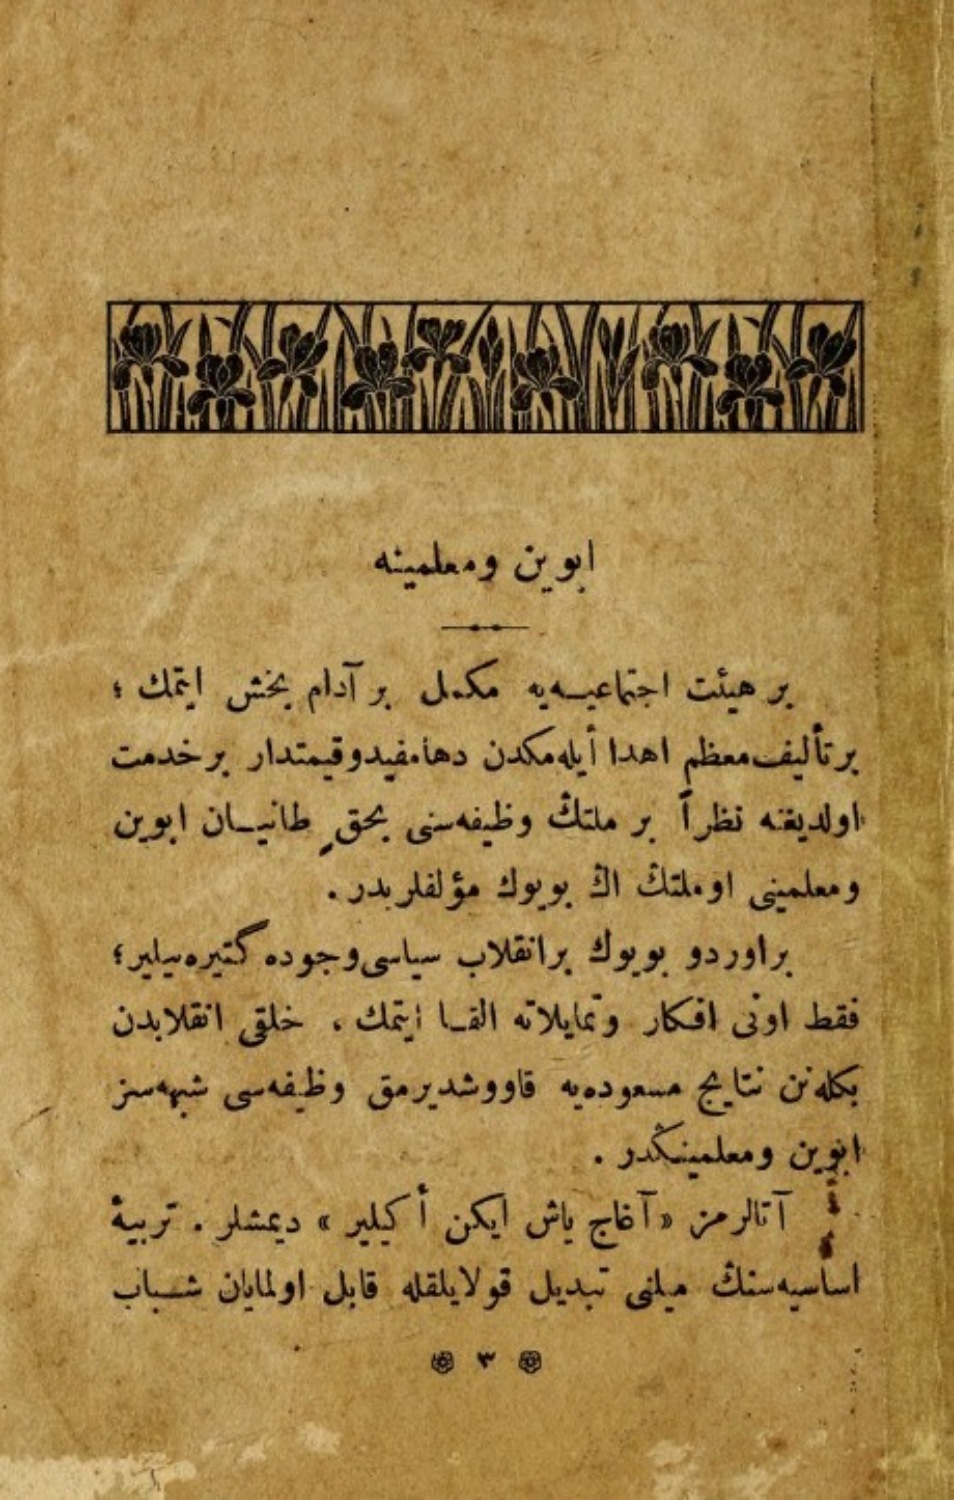 ابوین ومعلمینه
بر هیئت اجتماعیه‌یه مکمل بر آدام بخش ایتمك ؛
برتألیف معظم اهدا أیله‌مکدن دهامفیدوقیمتدار برخدمت
اولدیغنه نظراً بر ملتڭ وظیفه‌سنی بحقٍ طانیان ابوین
ومعلمینی اوملتڭ اڭ بویوك مؤلفلریدر .
براوردو بویوك برانقلاب سیاسی وجوده گتیره‌بیلیر؛
فقط اونی افکار وتمایلاته القا ایتمك ، خلقی انقلابدن
بکله‌نن نتایج مسعوده‌یه قاووشدیرمق وظیفه‌سی شبهه‌سز
ابوین ومعلمینڭدر .
آتالرمز «آغاج یاش ایکن أکیلیر» دیمشلر . تربیهٔ
اساسیه‌سنڭ میلنی تبدیل قولایلقله قابل اولمایان شباب
۳